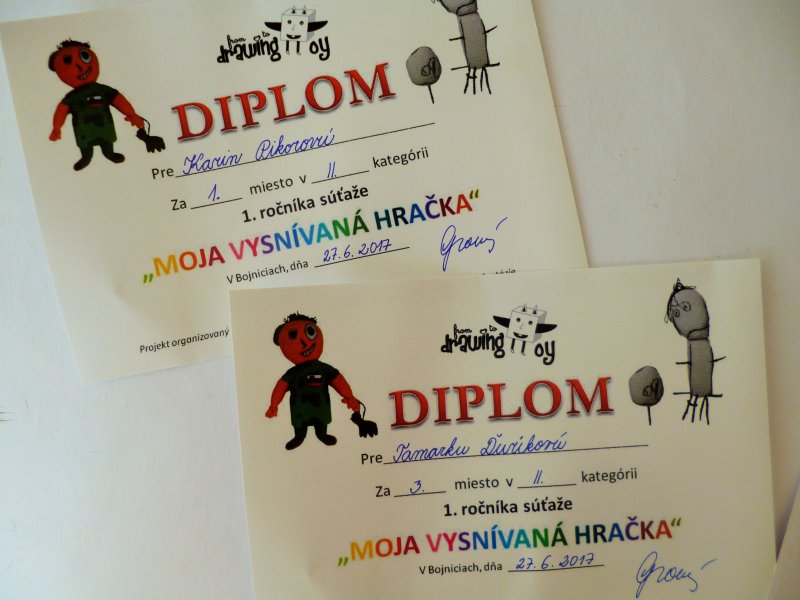 from to
drawing toy
DIPLOM
Pre Karin Pikorovú
Za 1. miesto v II. kategórii
1. ročníka súťaže
„MOJA VYSNÍVANÁ HRAČKA“
V Bojniciach, dňa 27. 6. 2017
Projekt organizovaný
from to
drawing toy
DIPLOM
Pre Tamarku Ďurikovú
Za 3. miesto v II. kategórii
1. ročníka súťaže
„MOJA VYSNÍVANÁ HRAČKA“
V Bojniciach, dňa 27. 6. 2017